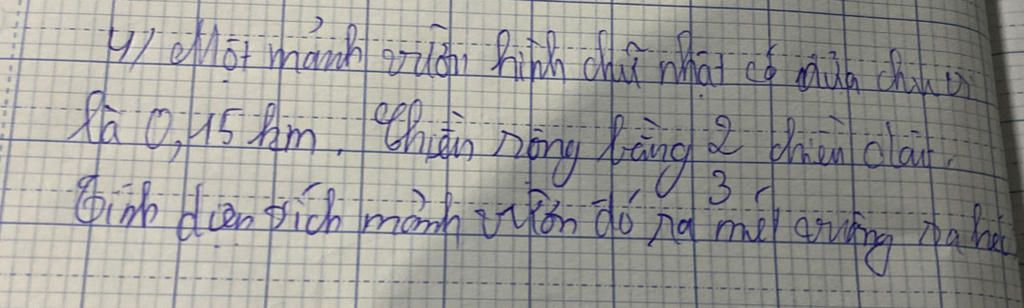 4) Một mảnh vườn hình chữ nhật có nửa chu vi
là 0,15 km. Chiều rộng bằng 2/3 chiều dài.
Tính diện tích mảnh vườn đó ra mét vuông ra héc